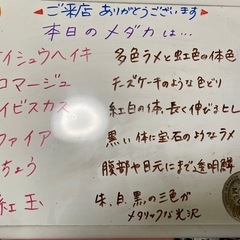 ご来店 ありがとうございます
本日のメダカは…
イシュウヘイキ 多色ラメと虹色の体色
コマージュ チーズケーキのような色どり
イビスカス 紅白の体、長く伸びるヒレ
ファイア 黒い体に宝石のようなラメ
ちょう 腹部や目元にまで透明鱗
紅玉 朱、白、黒の三色が
メタリックな光沢